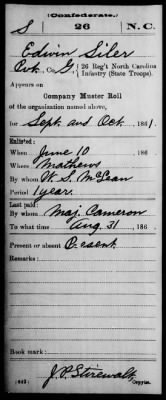 (Confederate.)
S 26 N.C.
Edwin Siler
Pvt., Co. G, 26 Reg't North Carolina
Infantry (State Troops).
Appears on
Company Muster Roll
of the organization named above,
for Sept. and Oct. 1861.
Enlisted:
When June 10 186
Where Mathews
By whom W. S. McLean
Period 1 year.
Last paid:
By whom Maj. Cameron
To what time Aug. 31 186
Present or absent Present.
Remarks:
Book mark:
J. P. Stirewalt
(642) Copyist.